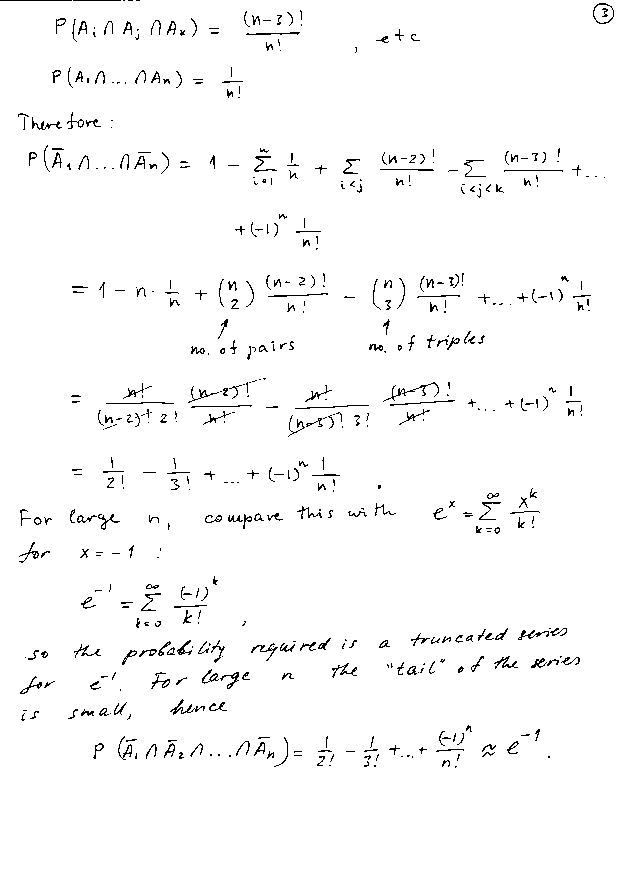 ③
P(Aᵢ ∩ Aⱼ ∩ Aₖ) = (n-3)!/n! , etc
P(A₁∩...∩Aₙ) = 1/n!
Therefore :
P(Ā₁∩...∩Āₙ) = 1 - Σ_{i=1}^{n} 1/n + Σ_{i<j} (n-2)!/n! - Σ_{i<j<k} (n-3)!/n! + ...
+(-1)ⁿ 1/n!
= 1 - n · 1/n + (n 2) (n-2)!/n! - (n 3) (n-3)!/n! + ... + (-1)ⁿ 1/n!
↑ ↑
no. of pairs no. of triples
= n!/((n-2)! 2!) (n-2)!/n! - n!/((n-3)! 3!) (n-3)!/n! + ... + (-1)ⁿ 1/n!
= 1/2! - 1/3! + ... + (-1)ⁿ 1/n! .
For large n, compare this with eˣ = Σ_{k=0}^{∞} xᵏ/k!
for x = -1 :
e⁻¹ = Σ_{k=0}^{∞} (-1)ᵏ/k! ,
so the probability required is a truncated series
for e⁻¹. For large n the "tail" of the series
is small, hence
P (Ā₁ ∩ Ā₂ ∩ ... ∩ Āₙ) = 1/2! - 1/3! + ... + (-1)ⁿ/n! ≈ e⁻¹.